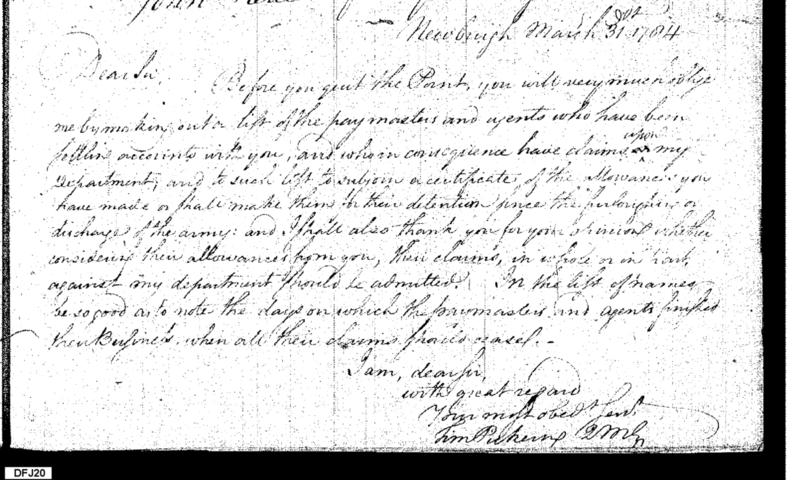 John
Newburgh March 31st 1784
Dear Sir,
Before you quit the Point, you will very much oblige
me by making out a list of the paymasters and agents who have been
settling accounts with you, and who in consequence have claims upon my
Department; and to such list to subjoin a certificate of the allowances you
have made or shall make them for their detention since the furloughing or
discharge of the army: and I shall also thank you for your opinion whether
considering their allowances from you, their claims, in whole or in part,
against my department should be admitted. In the list of names
be so good as to note the days on which the paymasters and agents finished
their Business, when all their claims should cease. -
I am, dear sir,
with great regard
Your most obedt servt
Tim Pickering QMG
DFJ20